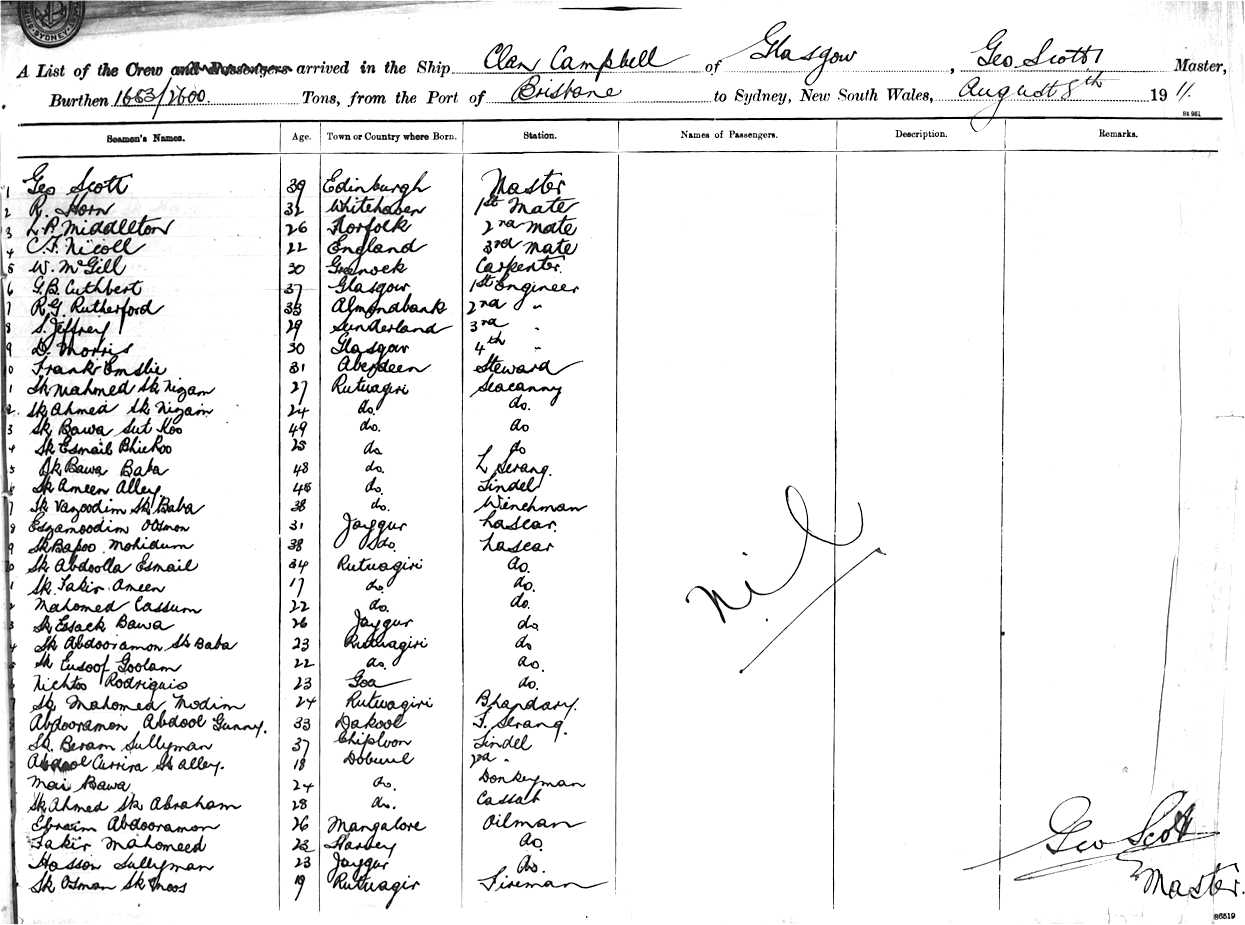 SYDNEY
A List of the Crew and Passengers arrived in the Ship Clan Campbell of Glasgow, Geo Scott Master,
Burthen 1653/2600. Tons, from the Port of Brisbane to Sydney, New South Wales, August 8th 1911.
Seamen's Names. Age. Town or Country where Born. Station. Names of Passengers. Description. Remarks.
1 Geo Scott 39 Edinburgh Master
2 R. Horn 32 Whitehaven 1st Mate
3 L.P. Middleton 26 Norfolk 2nd Mate
4 C.F. Nicoll 22 England 3rd Mate
5 W. McGill 30 Greenock Carpenter.
6 G.B. Cuthbert 37 Glasgow 1st Engineer
7 R.G. Rutherford 33 Almondbank 2nd "
8 S. Jeffrey 29 Sunderland 3rd "
9 D. Morris 30 Glasgow 4th "
0 Frank Emslie 31 Aberdeen Steward
1 Sk Mahmed Sk Nizam 27 Rutuagiri Seacanny
2 Sk Ahmed Sk Nizam 24 do. do.
3 Sk Bawa Sut Koo 49 do. do
4 Sk Esmail Bhickoo 25 do do
5 Sk Bawa Baba 48 do. L Serang.
6 Sk Ameen Alley 45 do. Tindel
7 Sk Vazoodim Sk Baba 38 do. Winchman
8 Eszamoodim Osmon 31 Jaygur Lascar.
9 Sk Bapoo Mohidum 38 do. Lascar
0 Sk Abdoolla Esmail 34 Rutuagiri do.
1 Sk. Fakir Ameen 17 do. do.
2 Mahomed Cassum 22 do. do.
3 Sk Essack Bawa 26 Jaygur do
4 Sk Abdooramon Sk Baba 23 Rutuagiri do
5 Sk Eusoof Goolam 22 do. do.
6 Rodriguis 23 Goa do.
7 Sk Mahomed Modim 24 Rutuagiri Bhandary.
8 Abdooramon Abdool Gunny. 33 Dakool F. Serang.
9 Sk. Beram Sullyman 37 Chiploon Tindel
0 Abdool Currira Sk alley. 18 Dobuul 2nd "
1 Mai Bawa 24 do. Donkeyman
Sk Ahmed Sk Abraham 28 do. Cassab
Ebraim Abdooramon 26 Mangalore Oilman
Fakir Mahomeed 23 do.
Hasson Sullyman 23 Jaygur do.
Sk Osman Sk Moos 19 Rutuagir Fireman
Nil
Geo Scott
Master.
86519